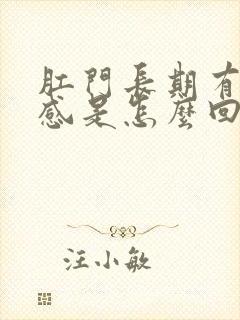 肛門長期有
感是怎麼回
汪小敏